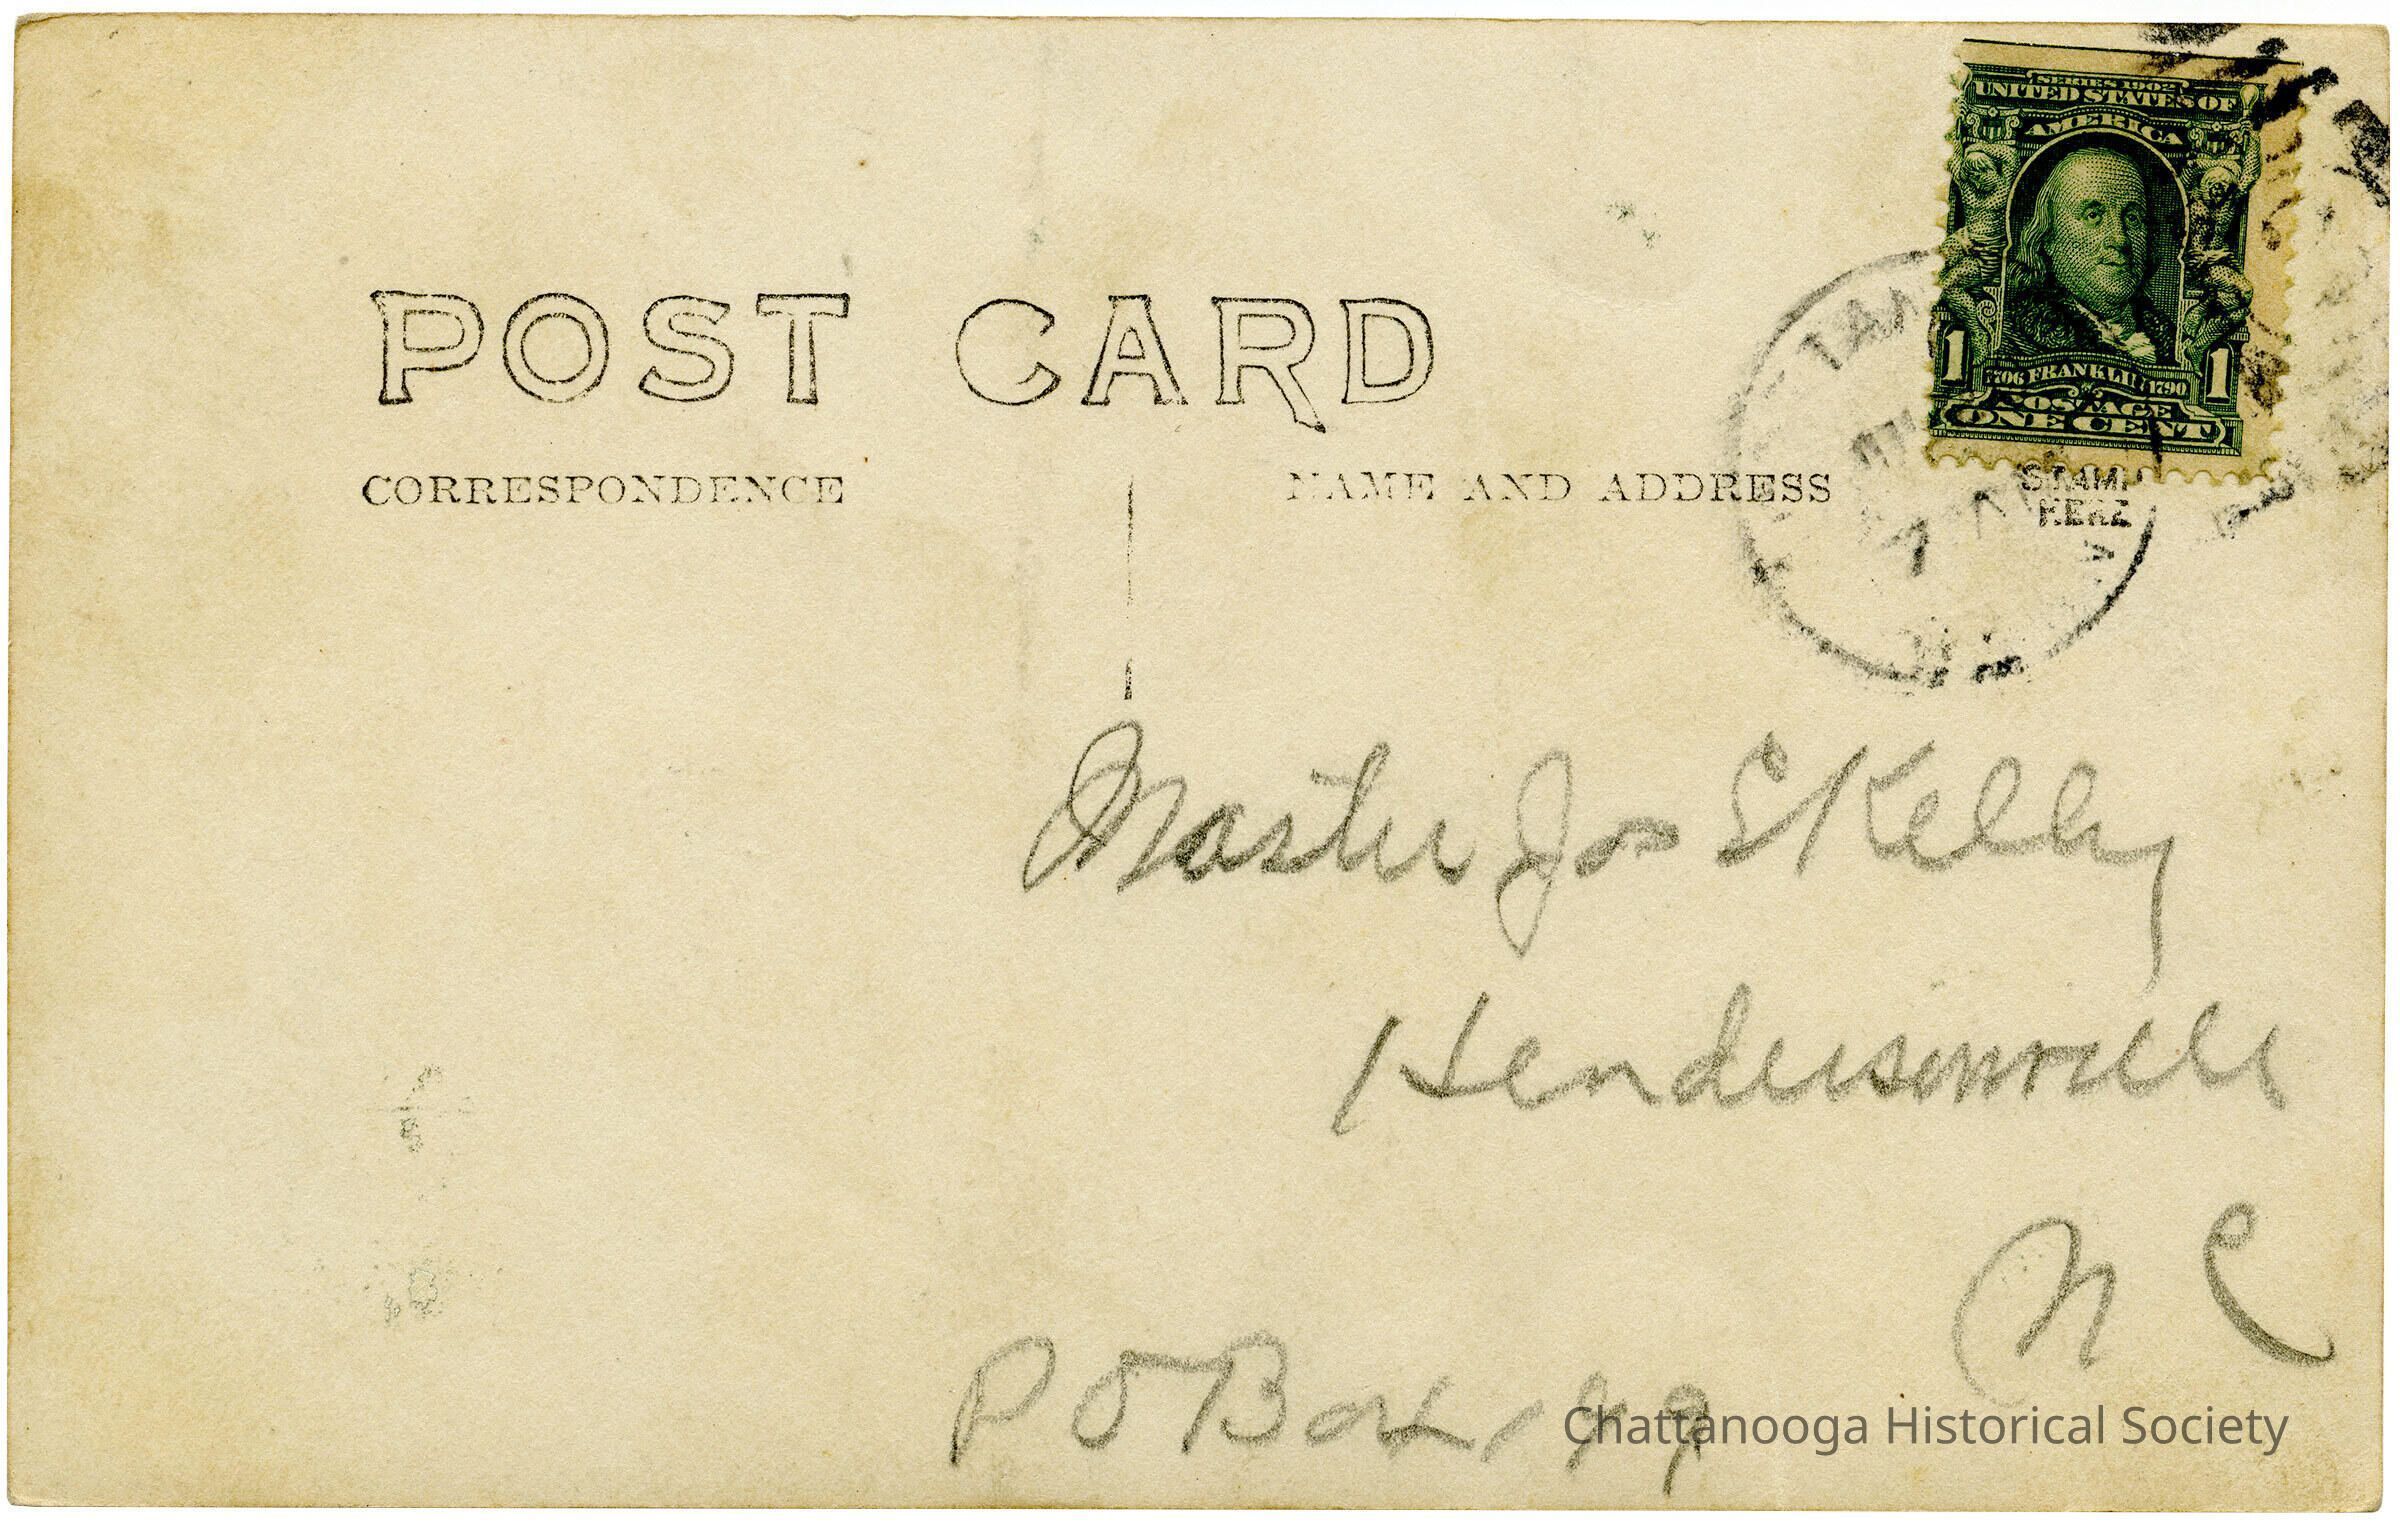 SERIES 1902
UNITED STATES OF
AMERICA
1 1
1706 FRANKLIN 1790
POSTAGE
ONE CENT
POST CARD
CORRESPONDENCE
NAME AND ADDRESS
STAMP
HERE
Master Jos S Kelly
Hendersonville
N C
P O Box
Chattanooga Historical Society